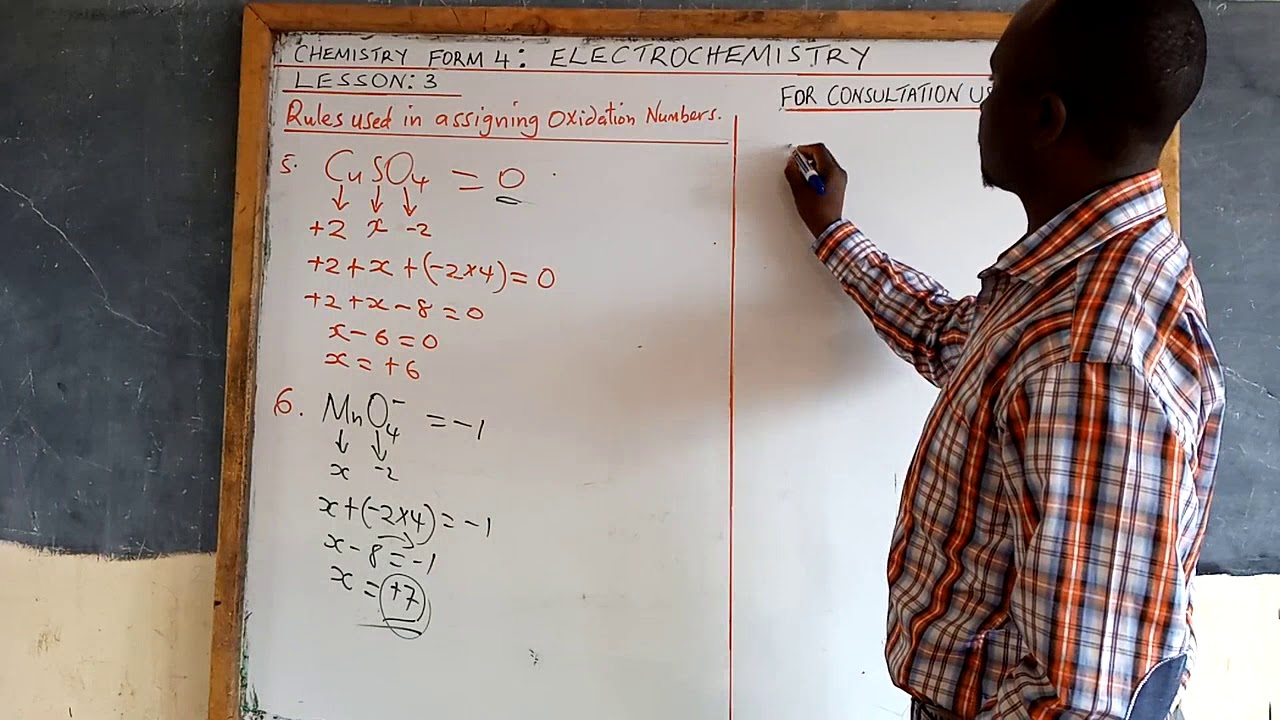 CHEMISTRY FORM 4: ELECTROCHEMISTRY
LESSON: 3
Rules used in assigning Oxidation Numbers.
5. CuSO₄ = 0
↓ ↓ ↓
+2 x -2
+2 + x + (-2×4) = 0
+2 + x - 8 = 0
x - 6 = 0
x = +6
6. MnO₄⁻ = -1
↓ ↓
x -2
x + (-2×4) = -1
x - 8 = -1
x = +7
FOR CONSULTATION